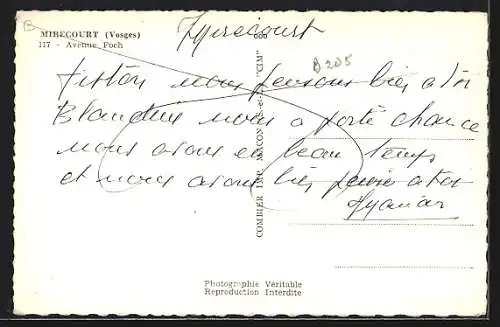 MIRECOURT (Vosges)
117 - Avenue Foch
Mirecourt
B 205
nous pensons bien a toi
Blandine nous a porté chance
nous avons eu beau temps
et nous avons bien pensé a toi
COMBIER IMP. MACON (S.-et-L.) "CIM"
Photographie Véritable
Reproduction Interdite